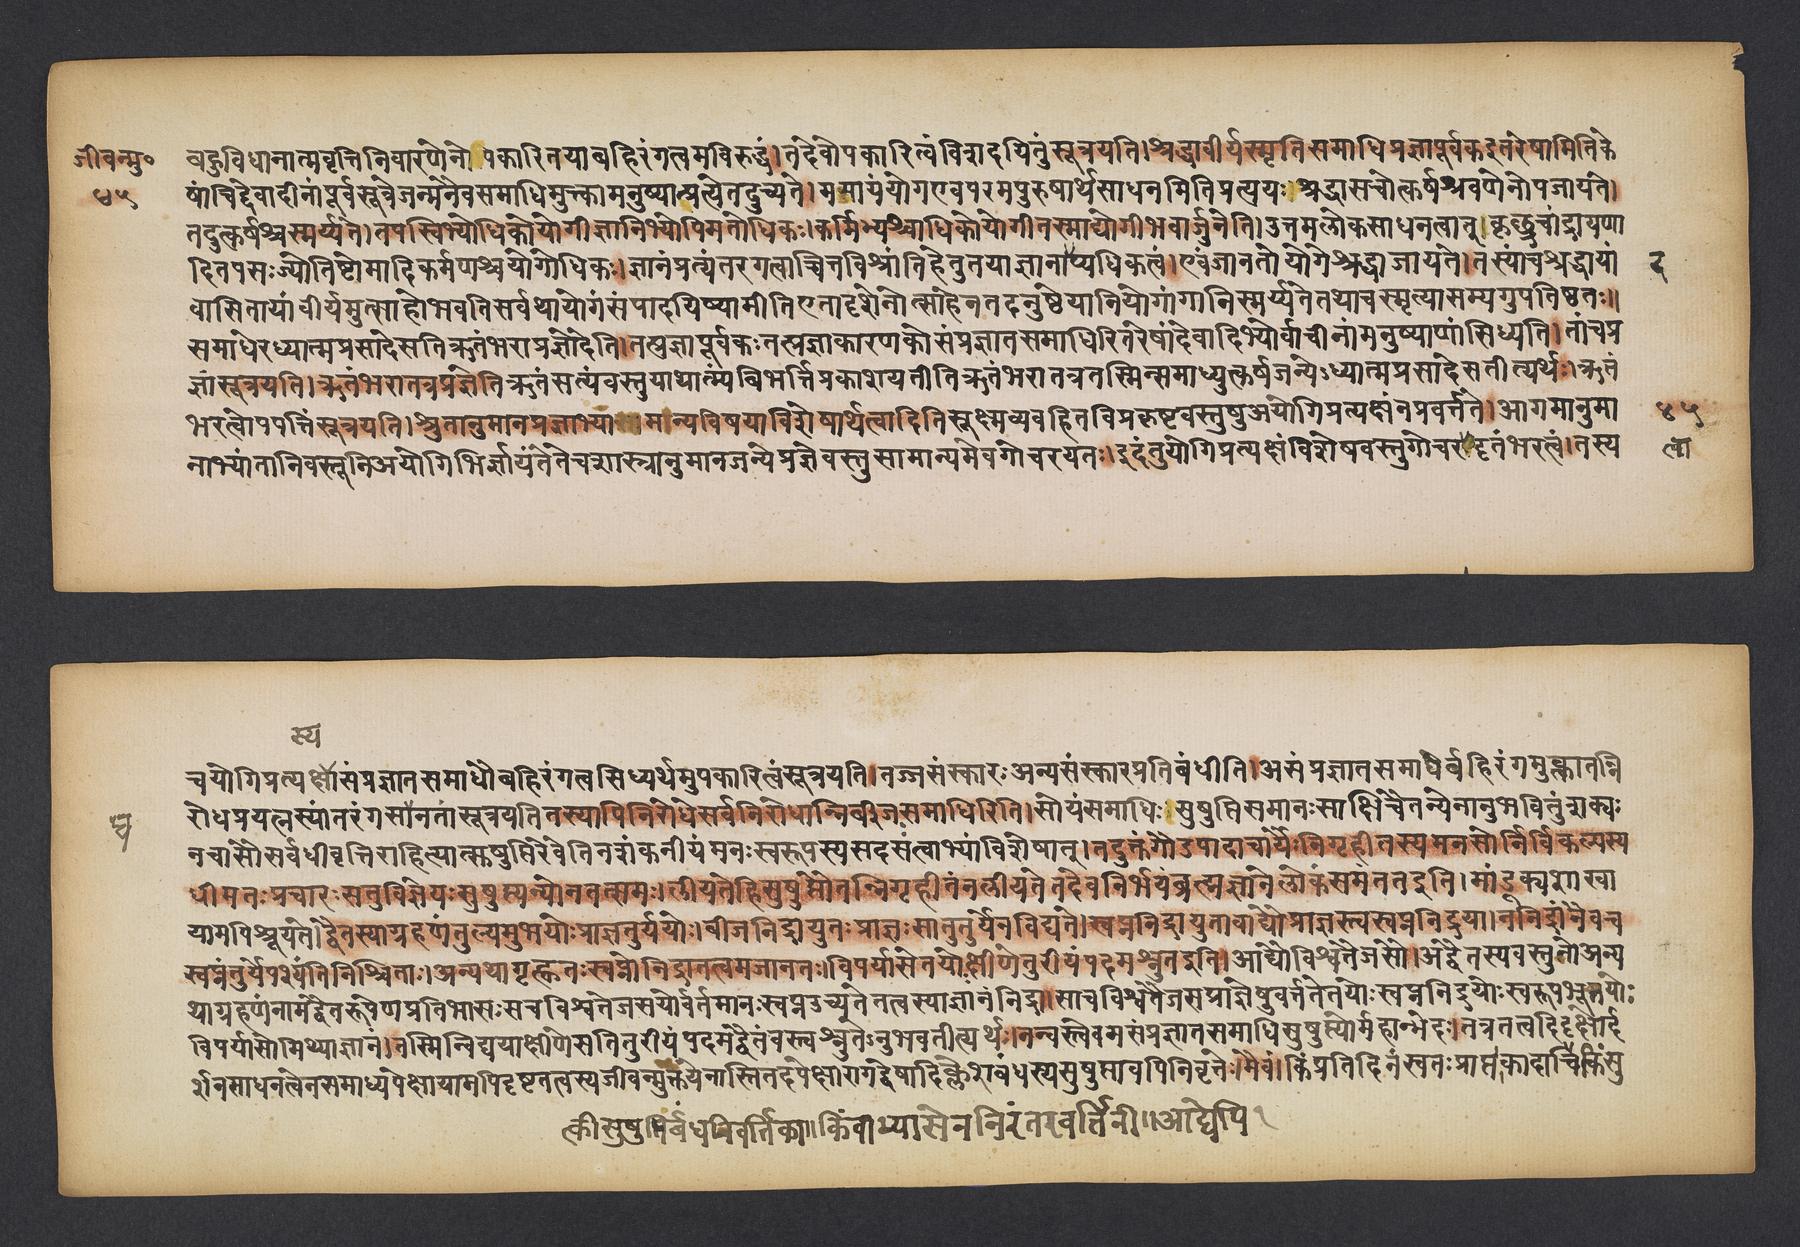 जीवन्मु०
४५
बहुविधानात्मवृत्तिनिवारणेनोपकारितयाबहिरंगत्वमविरुद्धं।तदेवोपकारित्वंविशदयितुंसूत्रयति।श्रद्धावीर्यस्मृतिसमाधिप्रज्ञापूर्वकइतरेषामितिके
षांचिद्देवादीनांपूर्वसूत्रेजन्मनैवसमाधिमुक्त्कामनुष्यान्प्रत्येतदुच्यते।ममायंयोगएवपरमपुरुषार्थसाधनमितिप्रत्ययः।श्रद्धासचोत्कर्षश्रवणेनोपजायते।
तदुत्कर्षश्चस्मर्य्यते।तपस्विभ्योधिकोयोगीज्ञानिभ्योपिमतोधिकः।कर्मिभ्यश्चाधिकोयोगीतस्माद्योगीभवार्जुनेति।उत्तमलोकसाधनत्वात्।कृच्छ्रचांद्रायणा
दितपसःज्योतिष्टोमादिकर्मणश्चयोगोधिकः।ज्ञानंप्रत्यंतरगत्वाच्चित्तविश्रांतिहेतुतयाज्ञानाप्यधिकत्वं।एवंजानतोयोगेश्रद्धाजायते।तस्यांचश्रद्धायां
द
वासितायांवीर्यमुत्साहोभवतिसर्वथायोगंसंपादयिष्यामीतिएतादृशेनोत्साहेनतदनुष्ठेयानियोगांगानिस्मर्य्यतेतथाचस्मृत्यासम्यगुपतिष्ठतः॥
समाधेरध्यात्मप्रसादेसतिऋतंभराप्रज्ञोदेति।तत्प्रज्ञापूर्वकःतत्प्रज्ञाकारणकोसंप्रज्ञातसमाधिरितरेषांदेवादिभ्योर्वाचीनांमनुष्याणांसिध्यति।तांचप्र
ज्ञांसूत्रयति।ऋतंभरातत्रप्रज्ञेतिऋतंसत्यंवस्तुयाथात्म्यंबिभर्त्तिप्रकाशयतीतिऋतंभरातत्रतस्मिन्समाध्युत्कर्षजन्येऽध्यात्मप्रसादेसतीत्यर्थः।ऋतं
भरत्वोपपत्तिंसूत्रयति।श्रुतानुमानप्रज्ञाभ्यामन्यविषयाविशेषार्थत्वादितिसूक्ष्मव्यवहितविप्रकृष्टवस्तुषुअयोगिप्रत्यक्षंनप्रवर्त्तते।आगमानुमा
४५
नाभ्यांतानिवस्तूनिअयोगिभिर्ज्ञायंतेतेचशास्त्रानुमानजन्येप्रज्ञेवस्तुसामान्यमेवगोचरयतः।इदंतुयोगिप्रत्यक्षंविशेषवस्तुगोचरदृतंभरत्वं।तस्य
त्वा
स्य
चयोगिप्रत्यक्षोसंप्रज्ञातसमाधौबहिरंगत्वसिध्यर्थमुपकारित्वंसूत्रयति।तज्जसंस्कारःअन्यसंस्कारप्रतिबंधीति।असंप्रज्ञातसमाधेर्बहिरंगमुक्त्कातन्नि
रोधप्रयत्नस्यांतरंगसानतांसूत्रयतितस्यापिनिरोधेसर्वनिरोधान्निर्बीजसमाधिरिति।सोयंसमाधिःसुषुप्तिसमानःसाक्षिचैतन्येनानुभवितुंशक्यः
नचासौसर्वधीवृत्तिराहित्यात्सुषुप्तिरेवेतिनशंकनीयंमनःस्वरूपस्यसदसत्वाभ्यांविशेषात्।तदुक्तंगौडपादाचार्यैःनिगृहीतस्यमनसोर्निर्विकल्पस्य
धीमतःप्रचारःसतुविज्ञेयःसुषुप्त्यन्योनतत्समः।लीयतेहिसुषुप्तौतन्निगृहीतंनलीयतेतदेवनिर्भयंब्रह्मज्ञानेलोकंसमंततइति।मांडूक्यशाखा
यामपिश्रूयते।द्वैतस्याग्रहणंतुल्यमुभयोःप्राज्ञतुर्ययोः।बीजनिद्रायुतःप्राज्ञःसातुतुर्येनविद्यते।स्वप्ननिद्रायुतावाद्यौप्राज्ञस्त्वस्वप्ननिद्रया।ननिद्रांनैवच
स्वप्नंतुर्येपश्यंतिनिश्चिताः।अन्यथागृह्णतःस्वप्नोनिद्रातत्वमजानतः।विपर्यासेतयोःक्षीणेतुरीयंपदमश्नुतइति।आद्यौविश्वतैजसौ।अद्वैतस्यवस्तुनोअन्य
थाग्रहणंनामद्वैतरूपेणप्रतिभासःसचविश्वतैजसयोर्वर्तमानःस्वप्नउच्यतेतत्वस्याज्ञानंनिद्रा।साचविश्वतैजसप्राज्ञेषुवर्त्ततेतयोःस्वप्ननिद्रयोःस्वरूपभूतयोः
विपर्यासोमिथ्याज्ञानं।तस्मिन्विद्ययाक्षीणेसतितुरीयंपदमद्वैतंवस्त्वश्नुतेःनुभवतीत्यर्थः।नन्वस्त्वेवमसंप्रज्ञातसमाधिसुषुप्त्योर्महान्भेदः।तत्रतत्वदिदृक्षोर्द
र्शनसाधनत्वेनसमाध्यपेक्षायामपिदृष्टतत्वस्यजीवन्मुक्तयेनास्तितदपेक्षारागद्वेषादिक्लेशबंधस्यसुषुप्तावपिनिवृत्तेः।मैवं।किंप्रतिदिनंस्वतःप्राप्ताकादाचित्किसु
त्कीसुषुप्तिर्बंधनिवर्तिका॥किंवाभ्यासेननिरंतरवर्तिनी॥आद्येपि१